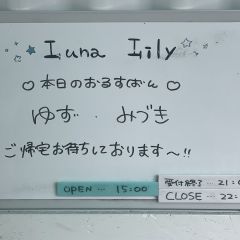 Luna Lily
♡本日のおるすばん♡
ゆず . みづき
ご帰宅お待ちしております〜!!
OPEN … 15:00
受付終了 … 21:
CLOSE … 22: